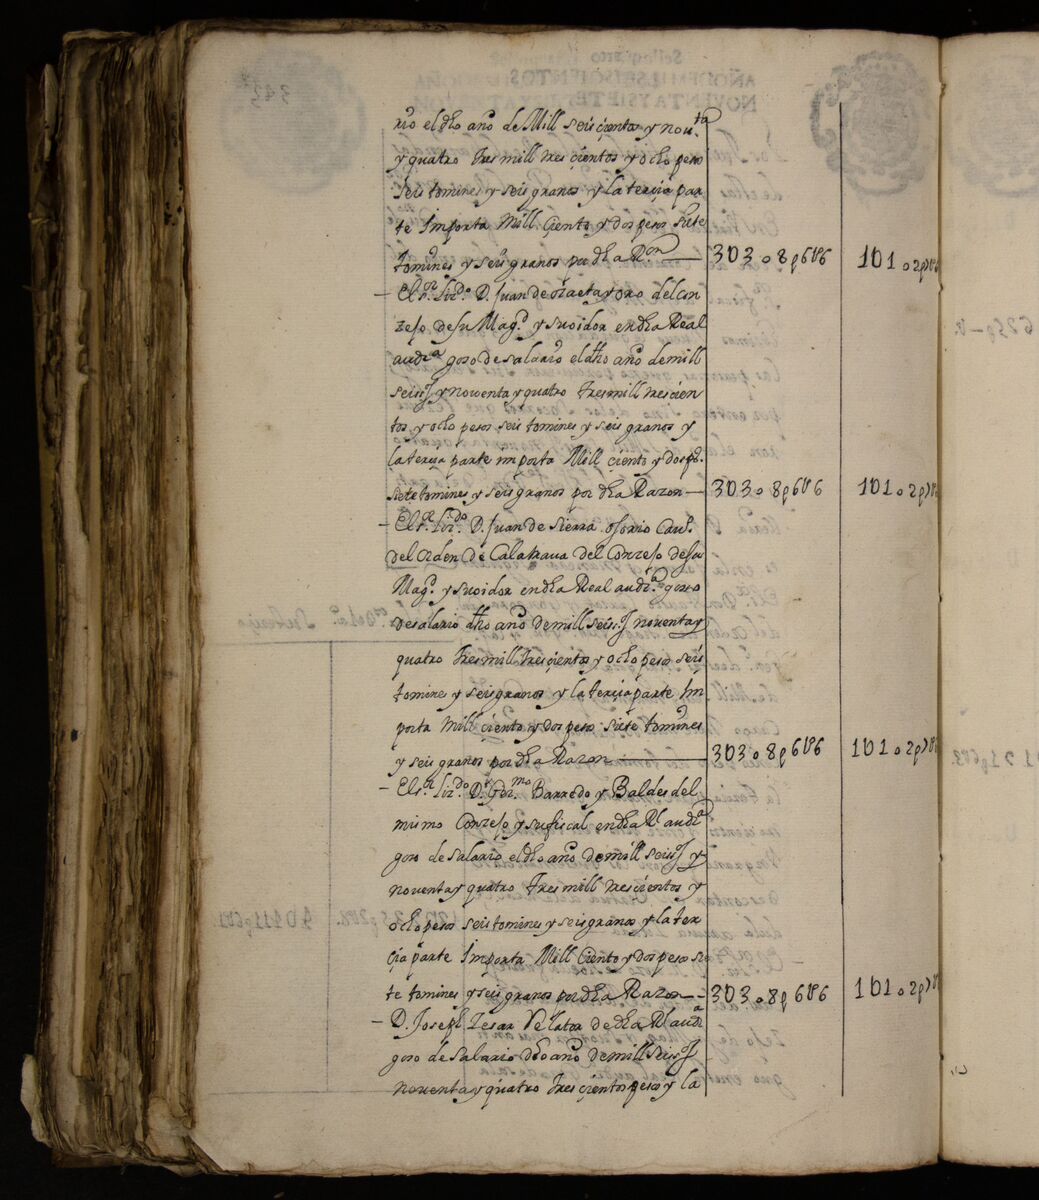 rio el dho año de Mill seisçientos y nou.ta
y quatro tres mill tres çientos y ocho pesos
seis tomines y seis granos y la terçia par
te Importa Mill Ciento y dos pesos siete
tomines y seis granos por dha R.on — 303o8p6t6 101o2p7t6
— El s.r Liz.do D. Juan de ozaeta y oro del con
zejo de su Mag.d y su oidor en dha Real
audi.a gozo de salario el dho año de mill
seiss.s y noventa y quatro tres mill tres cien
tos y ocho pesos seis tomines y seis granos y
la terçia parte importa Mill çiento y dos p.s
siete tomines y seis granos por dha Razon — 303o8p6t6 101o2p7t6
— El s.r Liz.do D. Juan de Sierra osorio Cau.o
del orden de Calatraua del Conzejo de su
Mag.d y su oidor en dha Real audi.a gozo
de salario dho año de mill seiss.s noventa y
quatro tres mill tres çientos y ocho pesos seis
tomines y seis granos y la terçia parte Im
porta Mill çiento y dos pesos siete tomines
y seis granos por dha Razon — 303o8p6t6 101o2p7t6
— El s.r Liz.do D. Gor.mo Barredo y Baldes del
mismo Conzejo y su fiscal en dha Rl audi.a
gozo de salario el dho año de mill seiss.s y
noventa y quatro tres mill tres cientos y
ocho pesos seis tomines y seis granos y la ter
çia parte Importa Mill Ciento y dos pesos sie
te tomines y seis granos por dha Razon — 303o8p6t6 101o2p7t6
— D. Joseph Zesar Relator de dha Rl audi.a
gozo de salario dho año de mill seiss.s
noventa y quatro tres çientos pesos y la